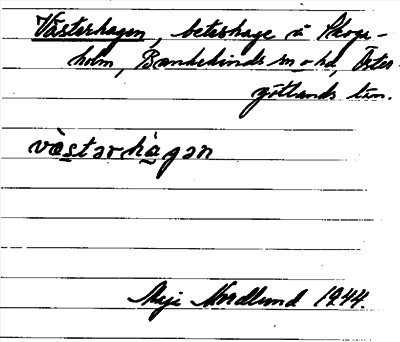 Västerhagen, beteshage å Skogs-
holm, Bankekinds sn o hd, Öster-
götlands län.
västərhàgən
Maji Nordlund 1944.